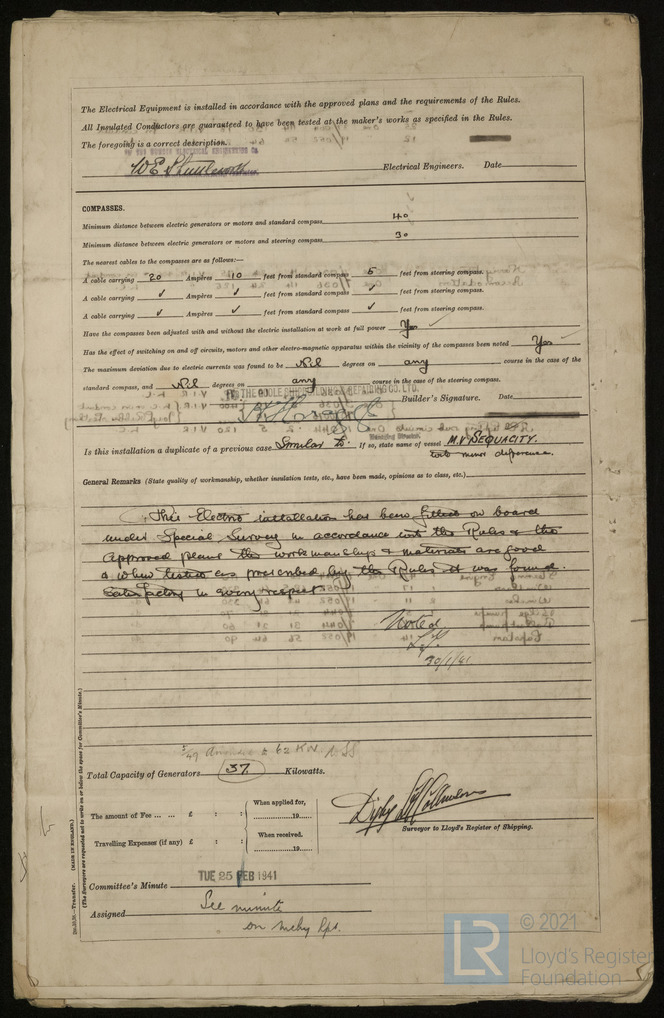 The Electrical Equipment is installed in accordance with the approved plans and the requirements of the Rules.
All Insulated Conductors are guaranteed to have been tested at the maker's works as specified in the Rules.
The foregoing is a correct description.
Electrical Engineers. Date
COMPASSES.
Minimum distance between electric generators or motors and standard compass 40
Minimum distance between electric generators or motors and steering compass 30
The nearest cables to the compasses are as follows:—
A cable carrying 20 Ampères 10 feet from standard compass 5 feet from steering compass.
A cable carrying ✓ Ampères ✓ feet from standard compass ✓ feet from steering compass.
A cable carrying ✓ Ampères ✓ feet from standard compass ✓ feet from steering compass.
Have the compasses been adjusted with and without the electric installation at work at full power Yes
Has the effect of switching on and off circuits, motors and other electro-magnetic apparatus within the vicinity of the compasses been noted Yes
The maximum deviation due to electric currents was found to be Nil degrees on any course in the case of the
standard compass, and Nil degrees on any course in the case of the steering compass.
FOR THE GOOLE SHIPBUILDING & REPAIRING CO. LTD.
Builder's Signature. Date
Managing Director.
Is this installation a duplicate of a previous case Similar to. If so, state name of vessel M.V SEQUACITY.
with minor difference.
General Remarks (State quality of workmanship, whether insulation tests, etc., have been made, opinions as to class, etc.)
This Electric installation has been fitted on board
under Special Survey in accordance with the Rules & the
approved plans the workmanship & materials are good
& when tested as prescribed by the Rules it was found
satisfactory in every respect.
Noted
30/1/41
Total Capacity of Generators 37. Kilowatts.
The amount of Fee ... ... £ : : When applied for, 19
Travelling Expenses (if any) £ : : When received. 19
Surveyor to Lloyd's Register of Shipping.
Committee's Minute TUE 25 FEB 1941
Assigned See minute
on mchy rpt.
(The Surveyors are requested not to write on or below the space for Committee's Minute.)
(MADE IN ENGLAND.)
LR
© 2021
Lloyd's Register
Foundation